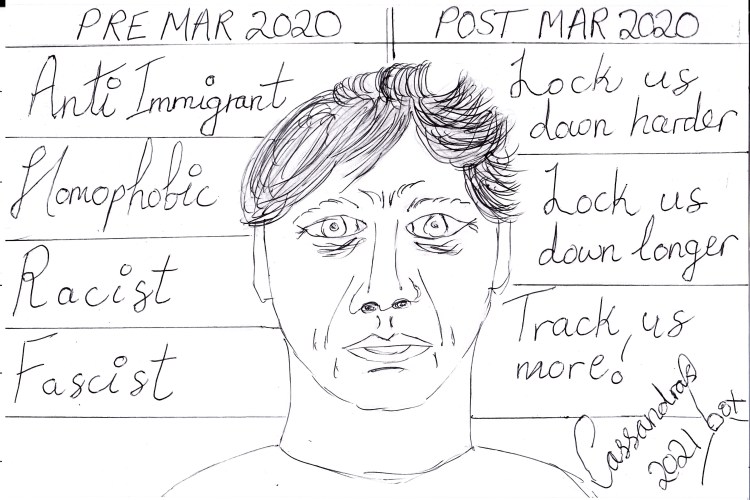 PRE MAR 2020
Anti Immigrant
Homophobic
Racist
Fascist
POST MAR 2020
Lock us
down harder
Lock us
down longer
Track us
more!
Cassandra's
Box
2021